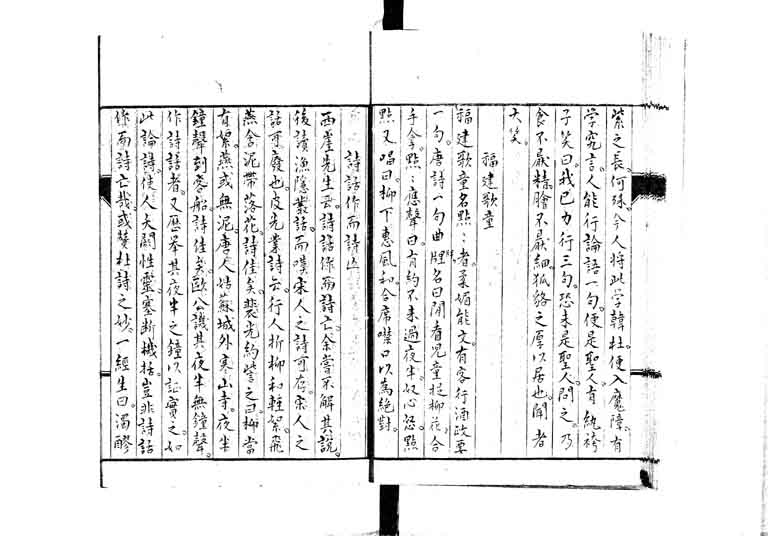 紫之長。何殊。今人將此學韓杜。便入魔障。有
學究言。人能行論語一句。便是聖人。有紈袴
子笑曰。我已力行三句。恐未是聖人。問之。乃
食不厭精。膾不厭細。狐貉之厚以居也。聞者
大笑。
福建歌童
福建歌童名點點者。柔媚能文。有客行酒政。要
一句唐詩。一句曲牌名。曰。閒看兒童捉柳花。合
手拿。點點應聲曰。有約不來過夜半。奴心怒。點
點又唱曰。柳下惠風和。合席噤口。以為絕對。
詩話作而詩亡
西崖先生云。詩話作而詩亡。余嘗不解其說。
後讀漁隱叢話。而嘆宋人之詩可存。宋人之
話可廢也。皮光業詩云。行人折柳和輕絮。飛
燕含泥帶落花。詩佳矣。裴光約訾之曰。柳當
有絮。燕或無泥。唐人姑蘇城外寒山寺。夜半
鐘聲到客船。詩佳矣。歐公譏其夜半無鐘聲。
作詩話者。又歷舉其夜半之鐘。以証實之。如
此論詩。使人夭閼性靈。塞斷機括。豈非詩話
作而詩亡哉。或贊杜詩之妙。一經生曰。濁醪